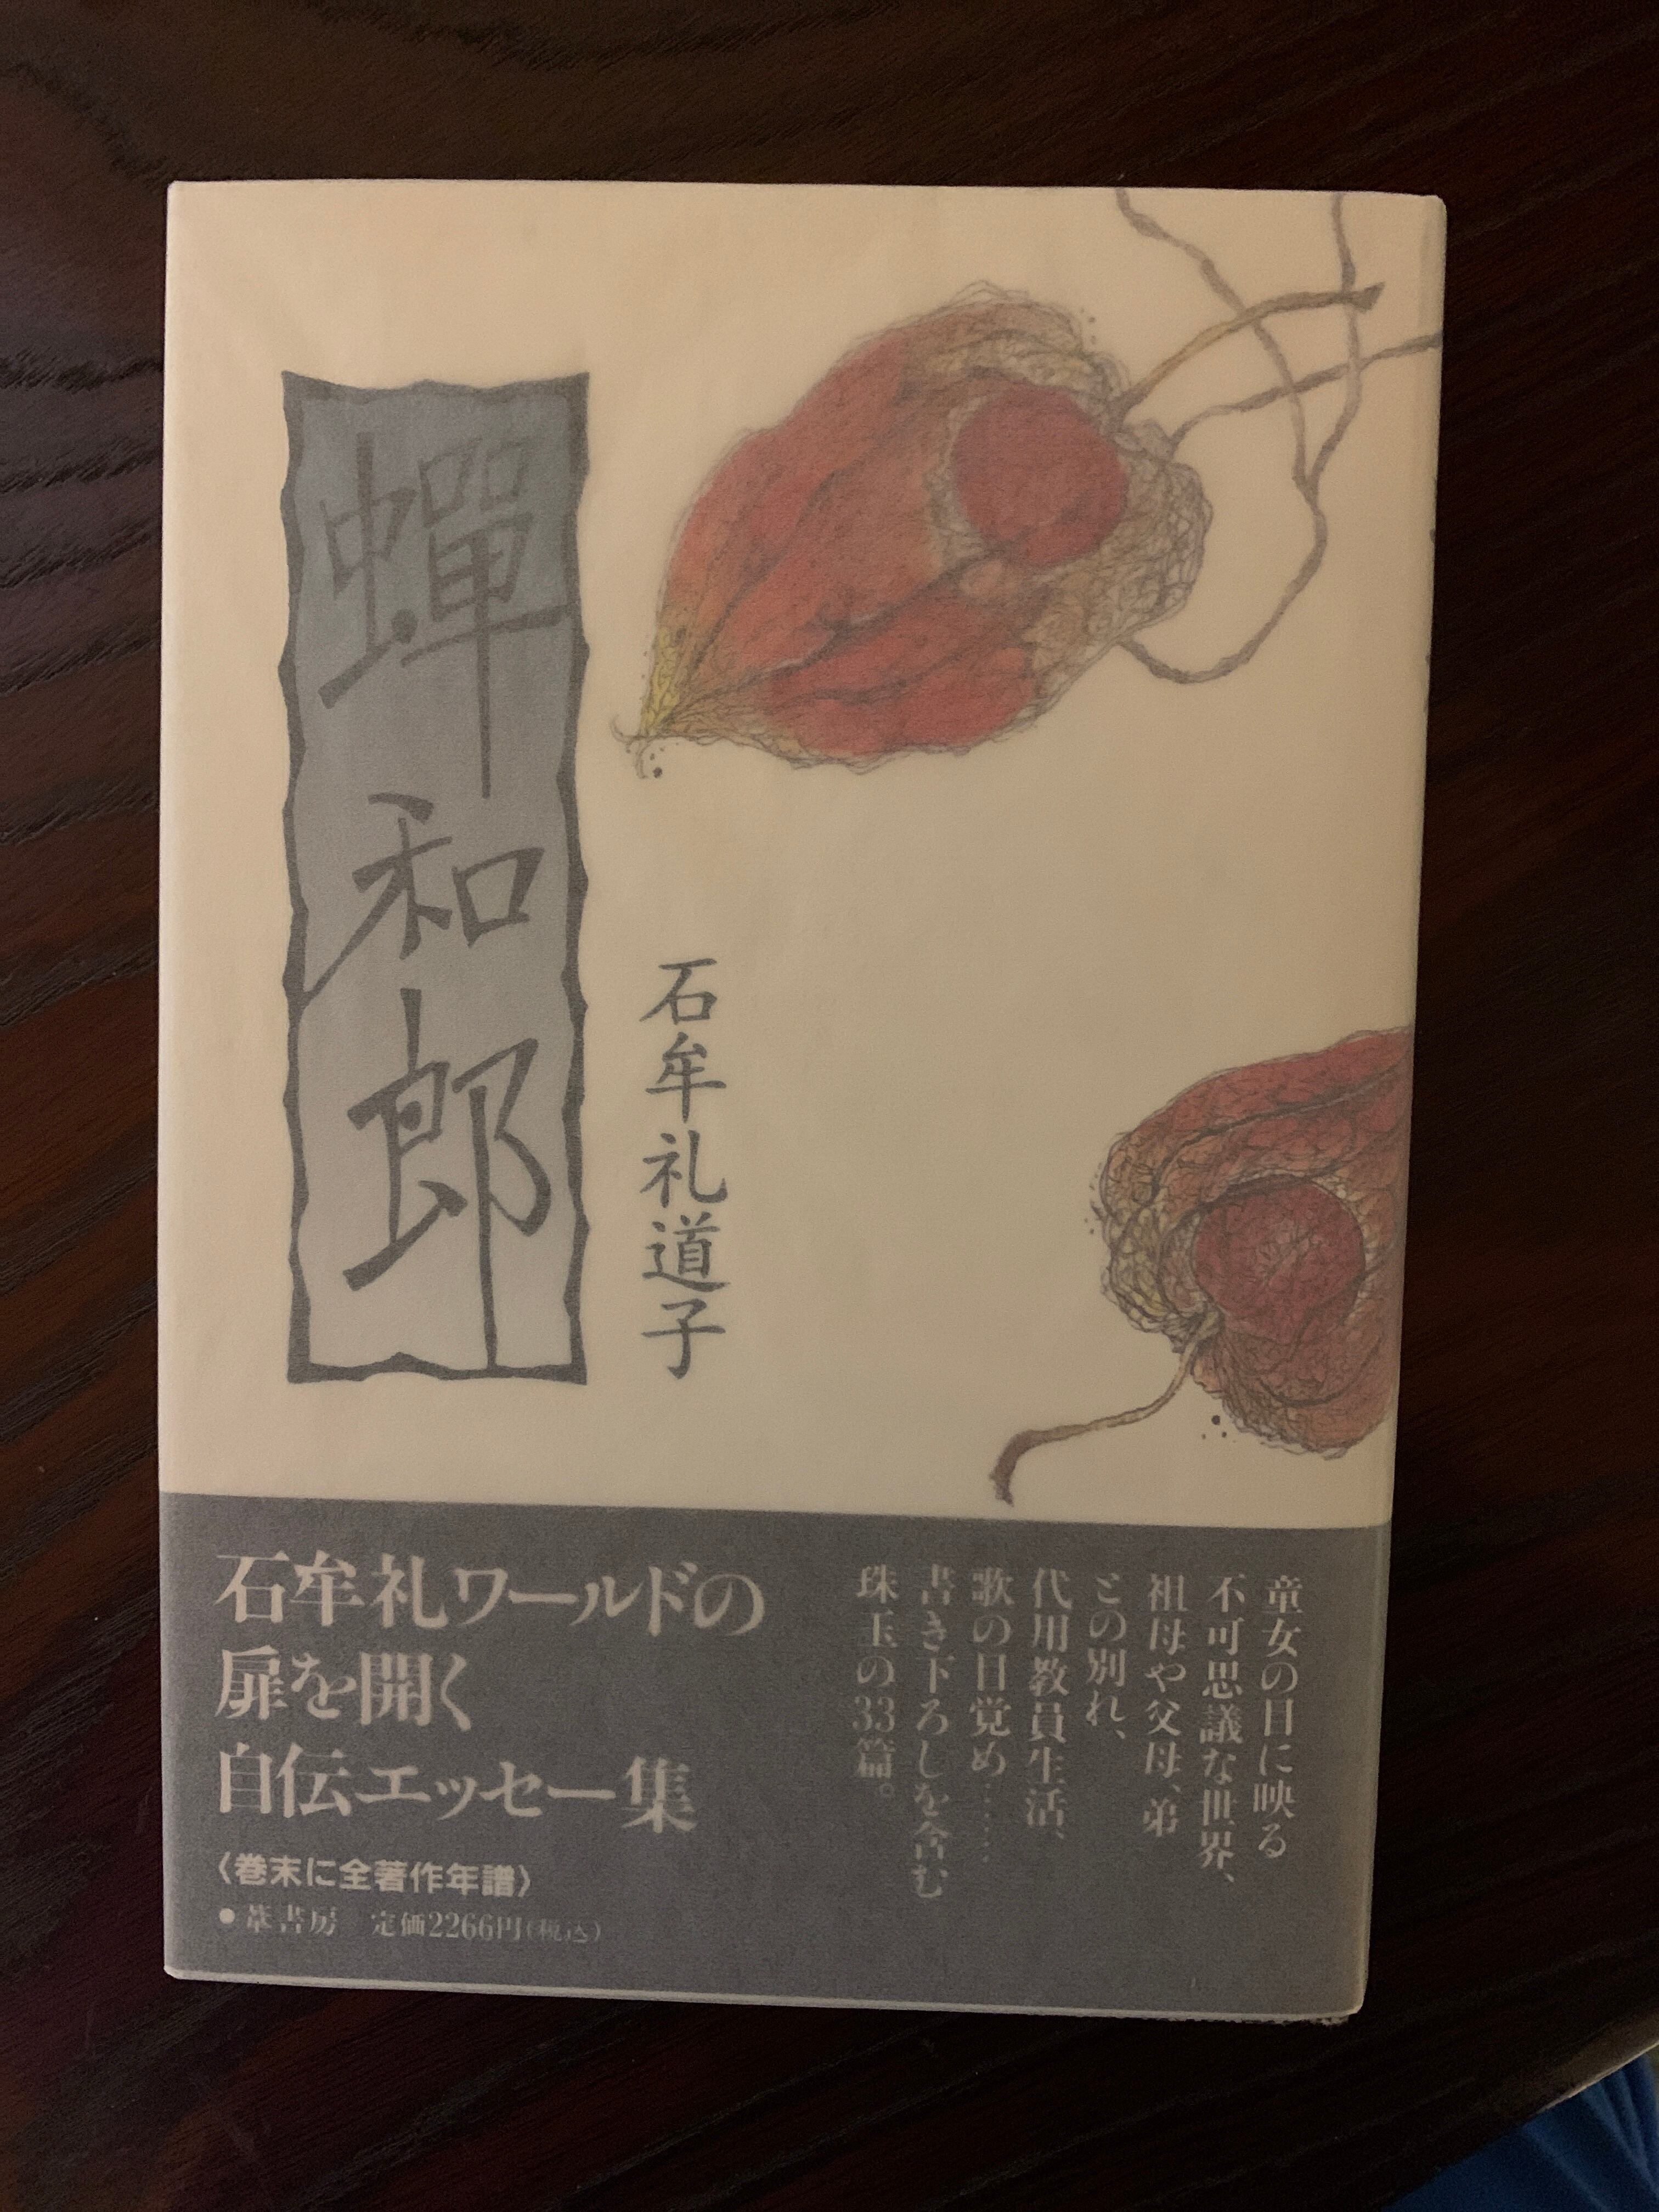 蟬和郎
石牟礼道子
童女の目に映る
不可思議な世界、
祖母や父母、弟
との別れ、
代用教員生活、
歌の目覚め……
書き下ろしを含む
珠玉の33篇。
石牟礼ワールドの
扉を開く
自伝エッセー集
〈巻末に全著作年譜〉
●葦書房 定価2266円(税込)